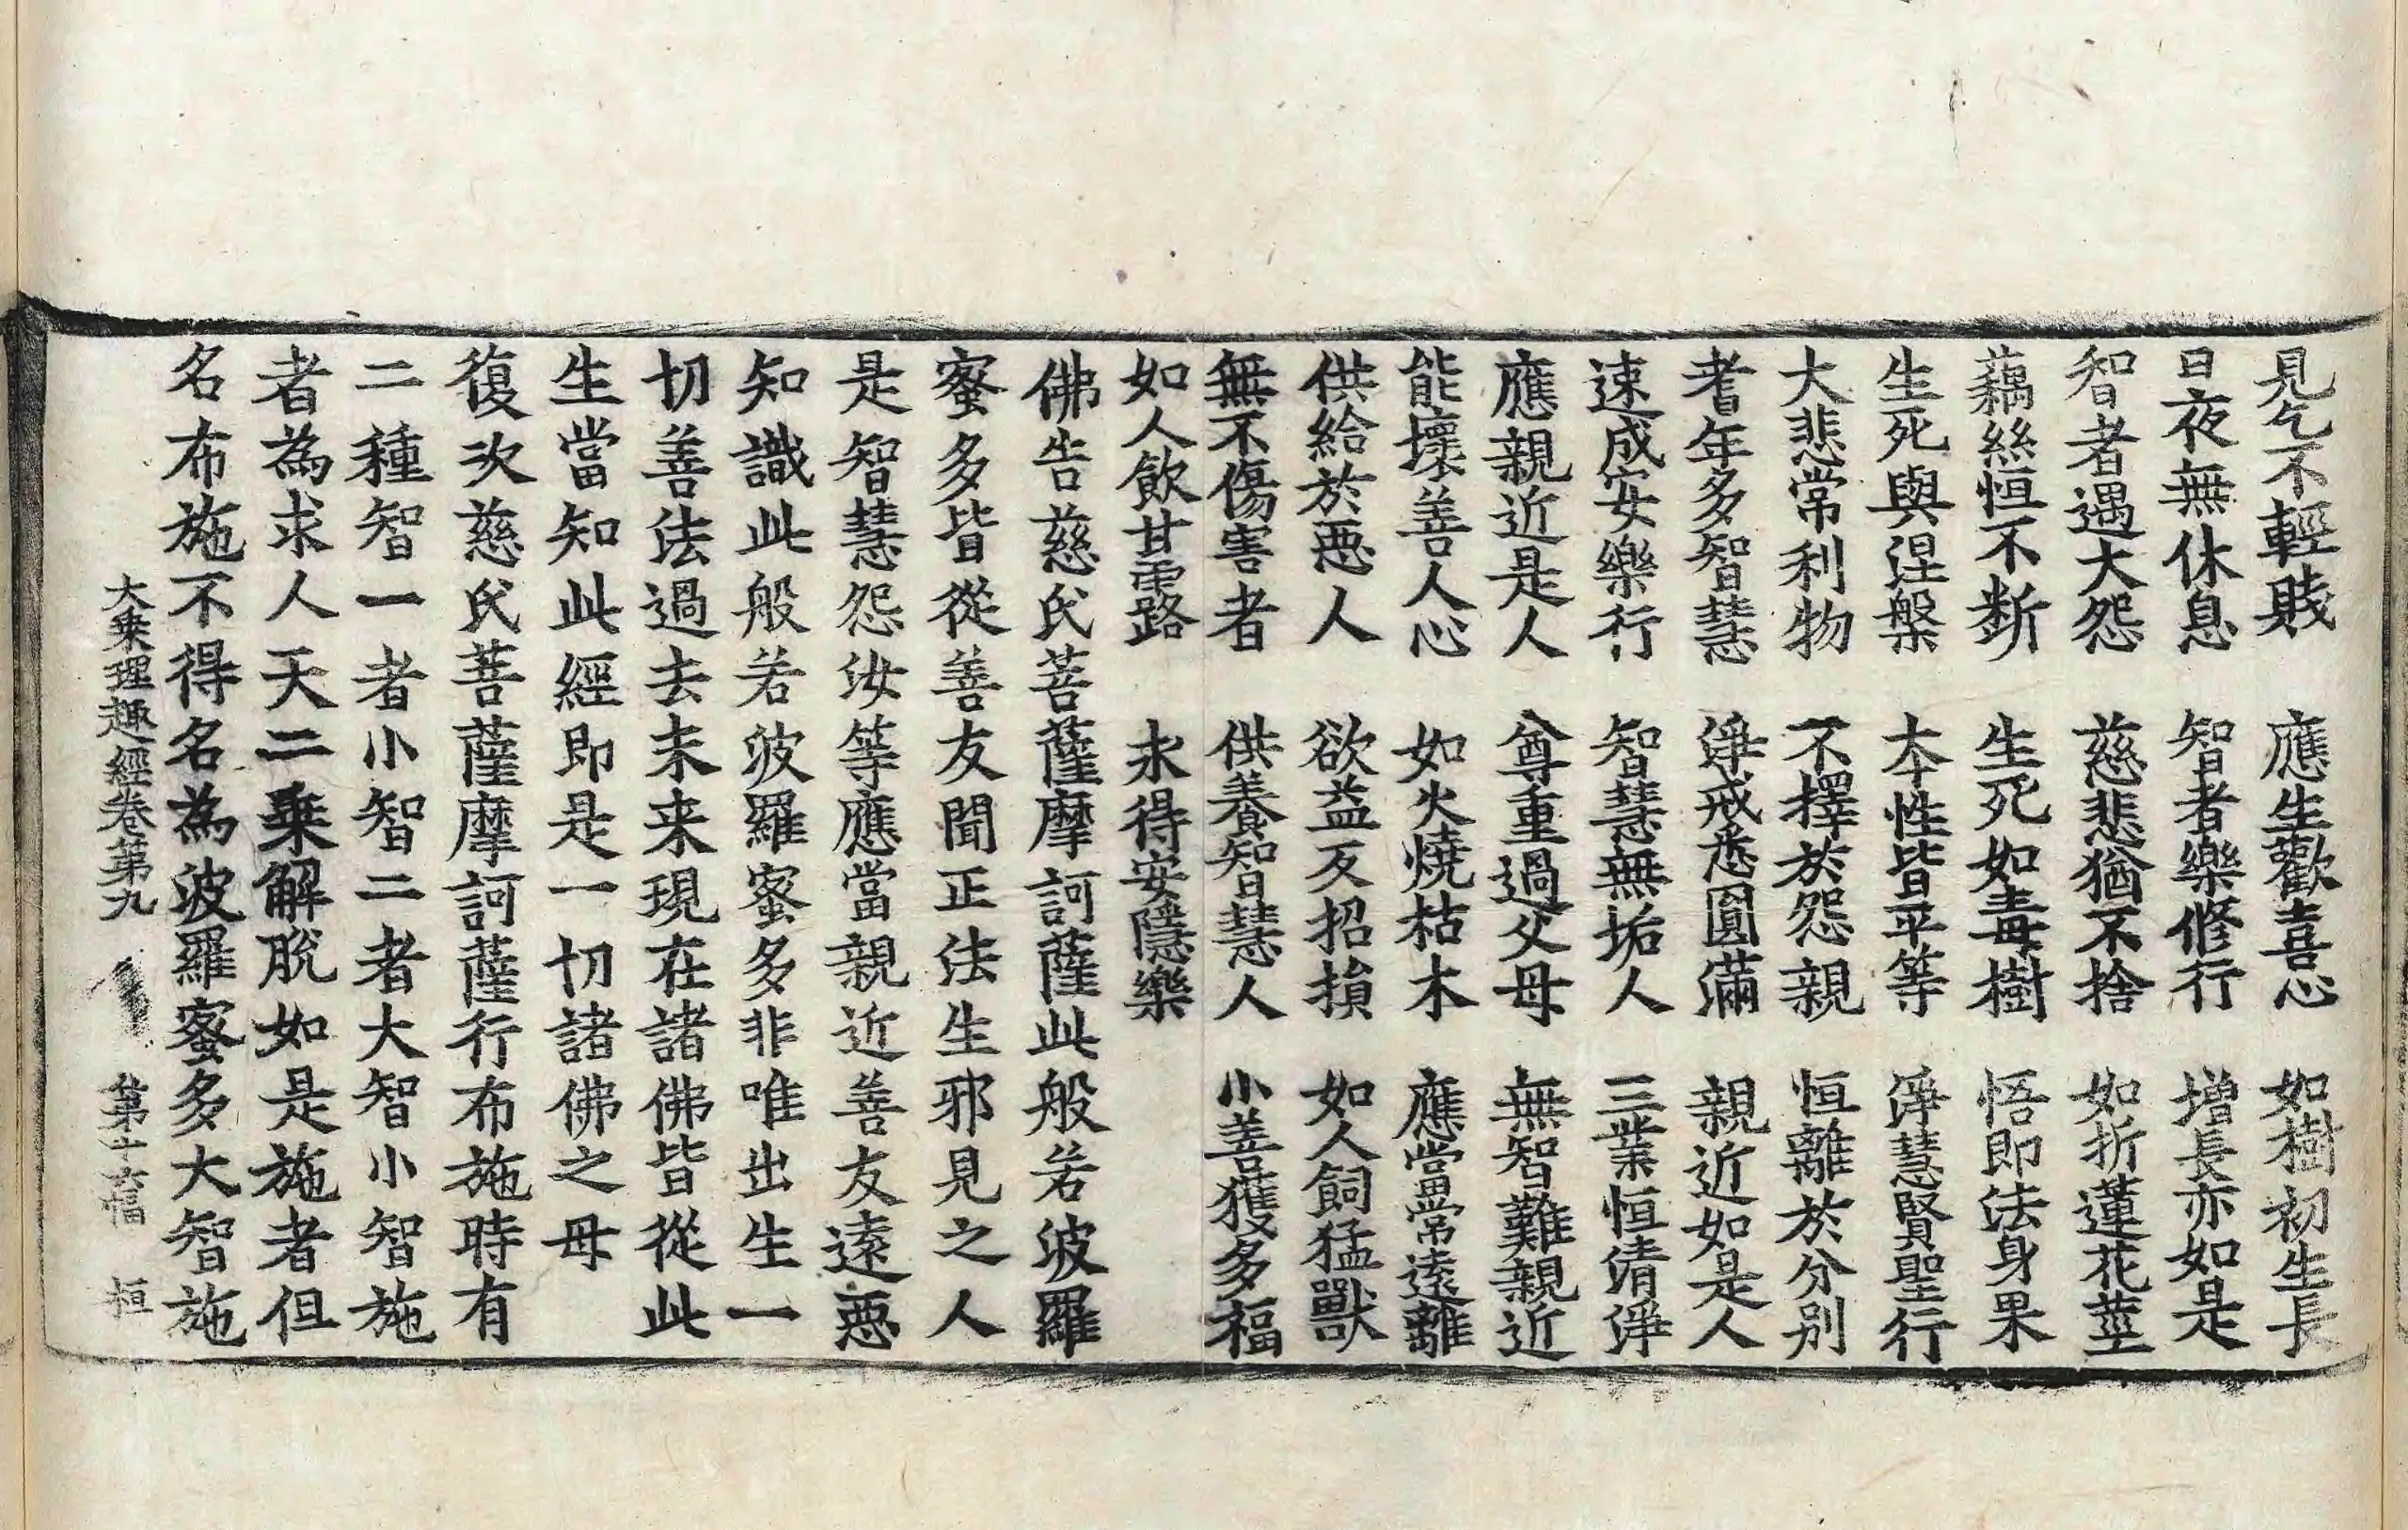 見乞不輕賤　應生歡喜心　如樹初生長
日夜無休息　智者樂修行　增長亦如是
智者遇大怨　慈悲猶不捨　如折蓮花莖
藕絲恒不断　生死如毒樹　悟即法身果
生死與涅槃　本性皆平等　淨慧賢聖行
大悲常利物　不擇於怨親　恒離於分別
耆年多智慧　淨戒悉圓滿　親近如是人
速成安樂行　智慧無垢人　三業恒清淨
應親近是人　尊重過父母　無智難親近
能壞善人心　如火燒枯木　應當常遠離
供給於惡人　欲益反招損　如人飼猛獸
無不傷害者　供養智慧人　小善獲多福
如人飲甘露　永得安隱樂
佛告慈氏菩薩摩訶薩此般若波羅
蜜多皆從善友聞正法生邪見之人
是智慧怨汝等應當親近善友遠惡
知識此般若波羅蜜多非唯出生一
切善法過去未来現在諸佛皆從此
生當知此經即是一切諸佛之母
復次慈氏菩薩摩訶薩行布施時有
二種智一者小智二者大智小智施
者為求人天二乗解脫如是施者但
名布施不得名為波羅蜜多大智施
大乗理趣經卷第九　第十六幅　恒